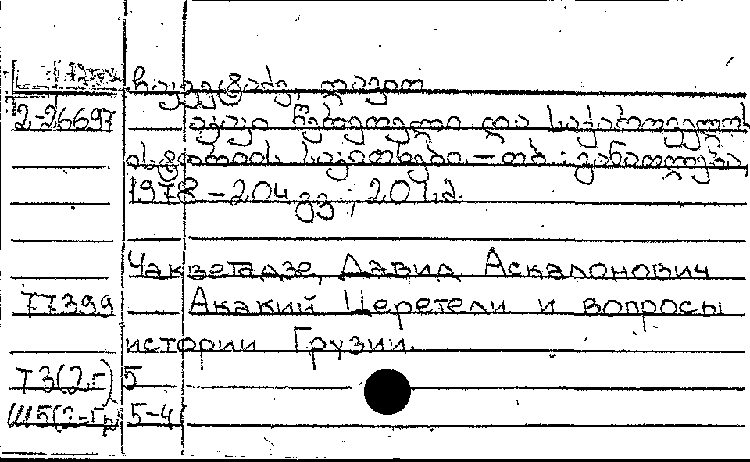 ჩაკვეტაძე, დავით
2-26697 აკაკი წერეთელი და საქართველოს
ისტორიის საკითხები – თბ.: განათლება,
1978 – 204 გვ ; 20 ს.
Чакветадзе, Давид Аскалонович
77399 Акакий Церетели и вопросы
истории Грузии.
Т3(2Г) 5
Ш5(2=Гр) 5-4